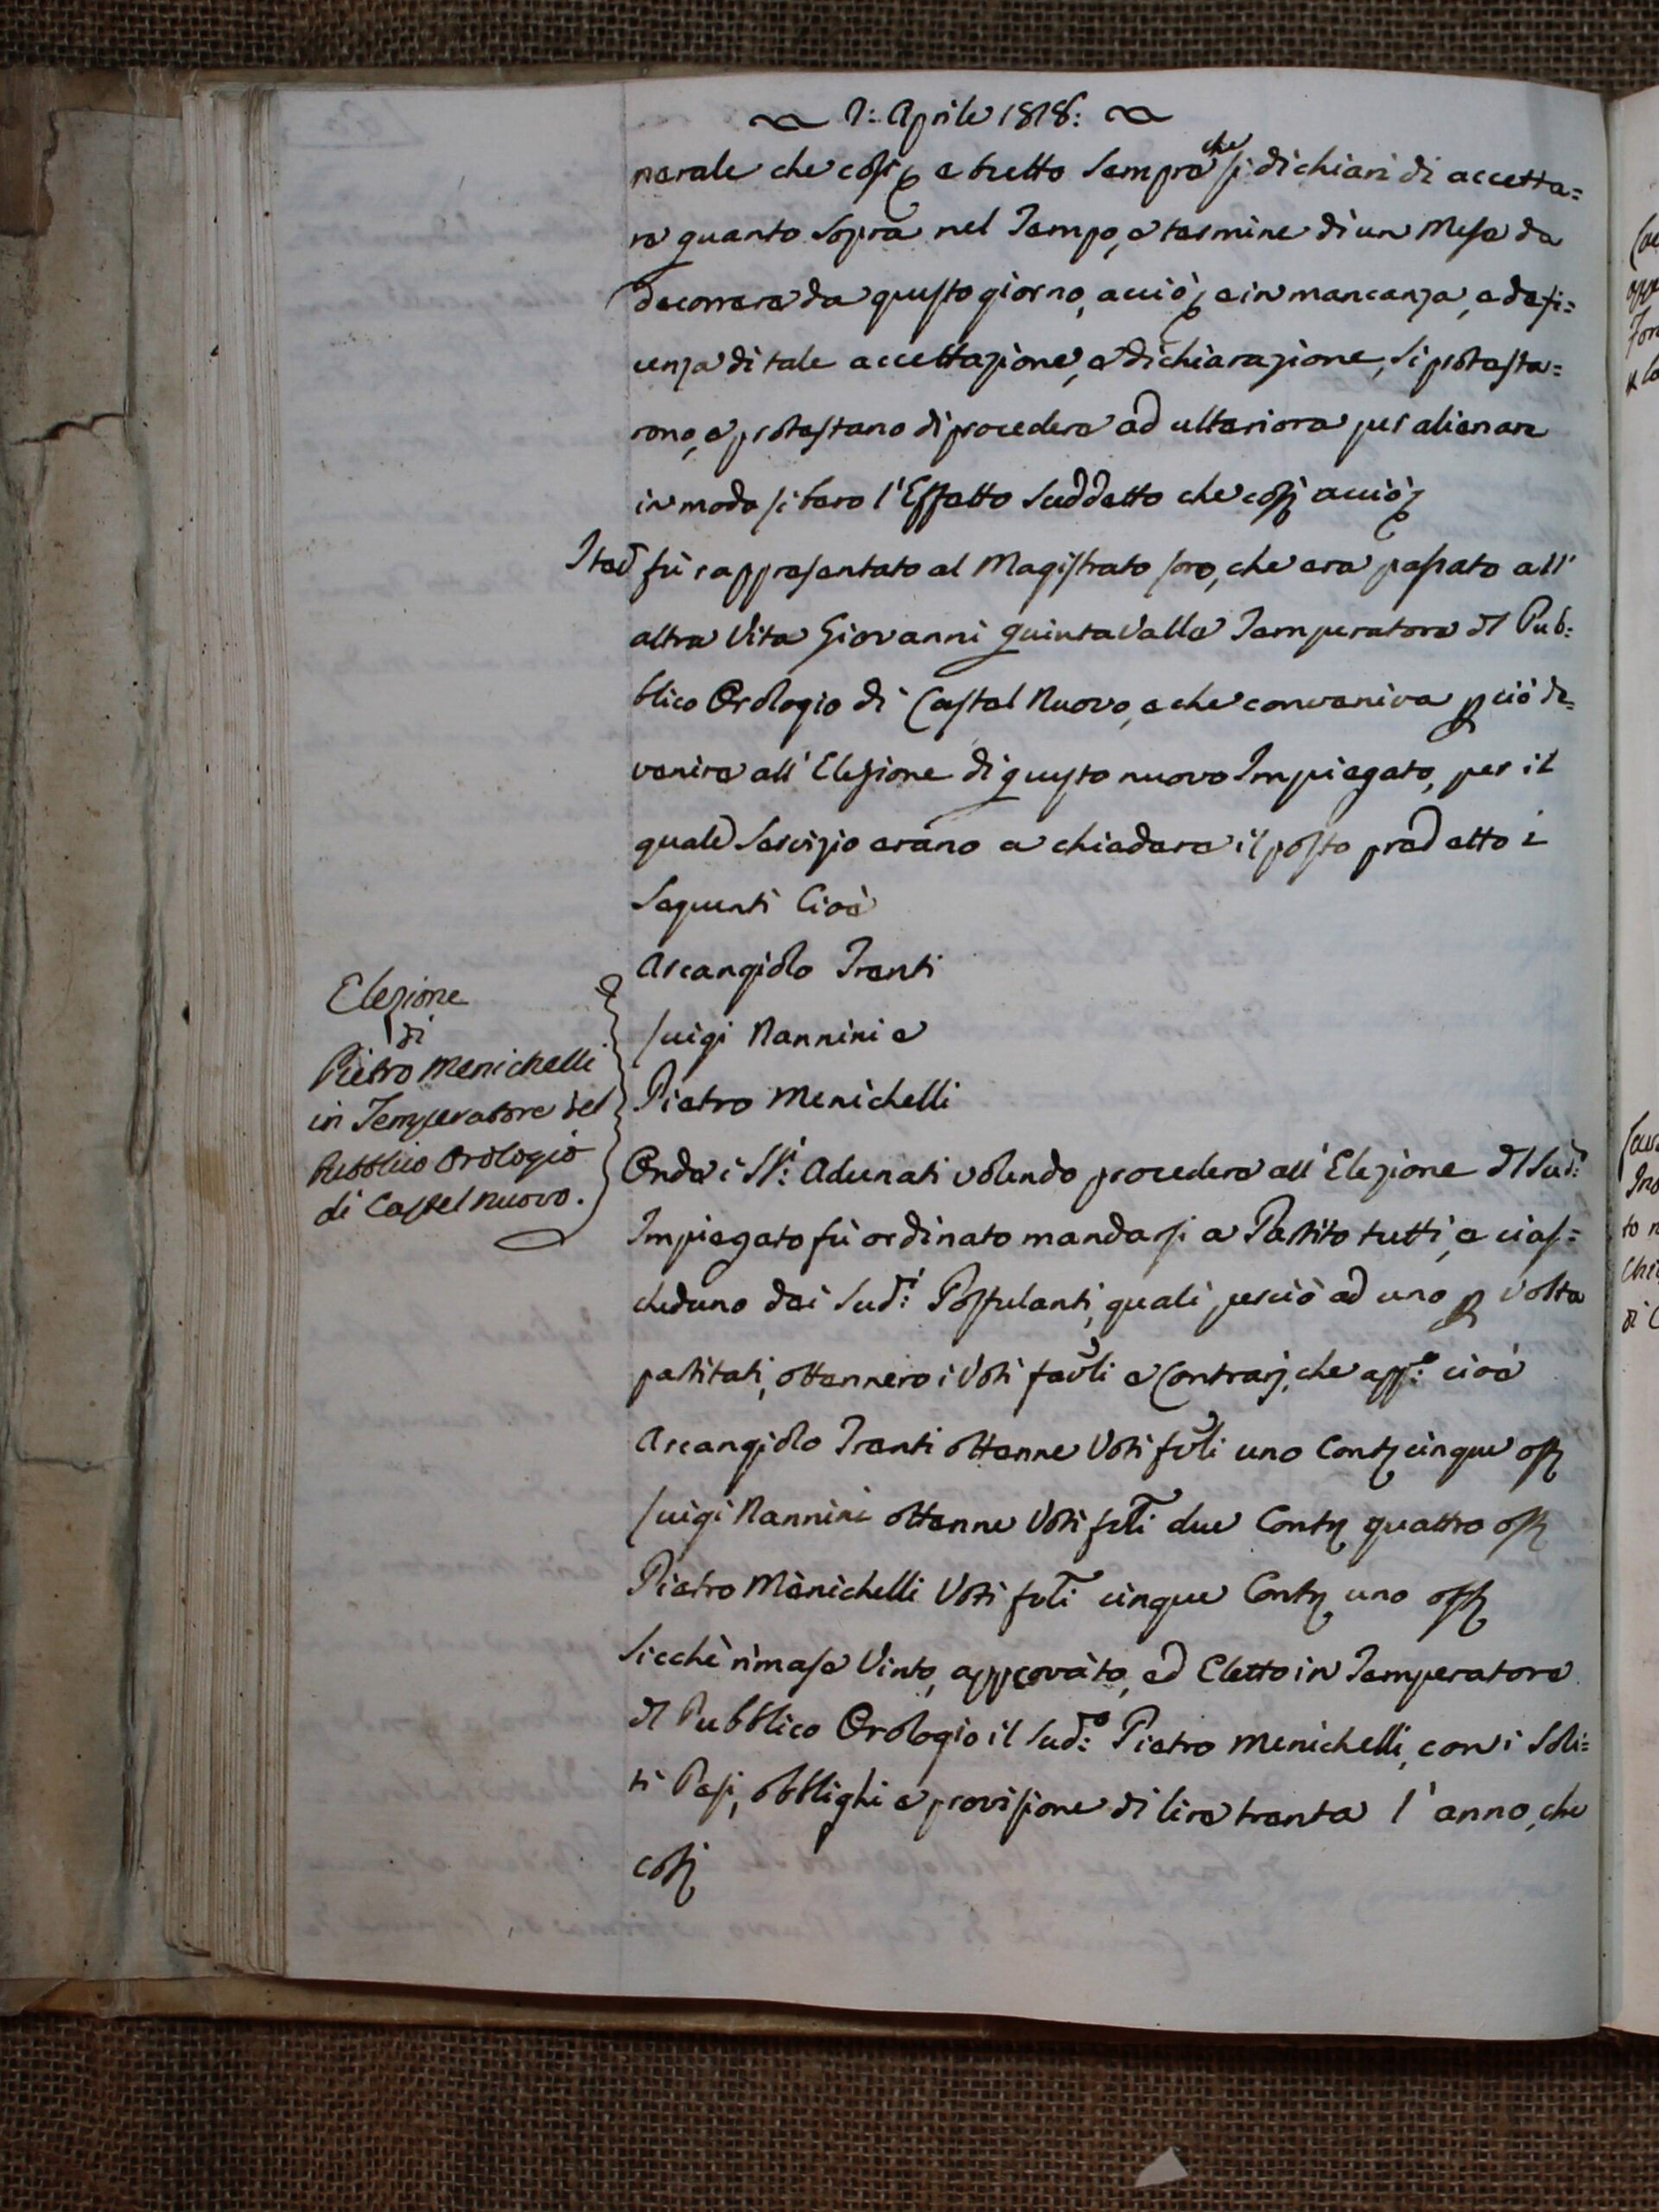 1: Aprile 1818:
nerale che così p. e tutto sempre che si dichiari di accetta=
re quanto sopra nel Tempo, e termine di un Mese da
decorrere da questo giorno, acciò p. e in mancanza, e defi:
cenza di tale accettazione, e dichiarazione, si protesta=
rono, e protestano di procedere ad ulteriora per alienare
in modo si bero l'Effetto suddetto che così acciò p.
Ited fù rappresentato al Magistrato loro, che era passato all'
altra Vita Giovanni Quintavalle Temperatore dl Pub:
blico Orologio di Castel Nuovo, e che conveniva p ciò de=
venire all'Elezione di questo nuovo Impiegato, per il
quale Servizio erano a chiedere il posto predetto i
Seguenti Cioè
Arcangiolo Trenti
Luigi Nannini e
Pietro Menichelli
Elezione
di
Pietro Menichelli
in Temperatore del
Pubblico Orologio
di Castel nuovo.
Onde i SS:ri Adunati volendo procedere all'Elezione dl Sud:o
Impiegato fù ordinato mandarsi a Partito tutti, e cias=
cheduno dei Sud:i Postulanti, quali perciò ad uno p volta
partitati, ottennero i Voti favoli e Contrarj, che app:o cioè
Arcangiolo Trenti ottenne Voti fvli uno Contr cinque ost
Luigi Nannini ottenne Voti fvli due Contr quattro ost
Pietro Menichelli Voti fvli cinque Contr uno ost
Sicchè rimase Vinto, approvato, ed Eletto in Temperatore
dl Pubblico Orologio il Sud:o Pietro Menichelli, con i Soli=
ti Pesi, obblighi e provisione di lire trenta l'anno, che
così